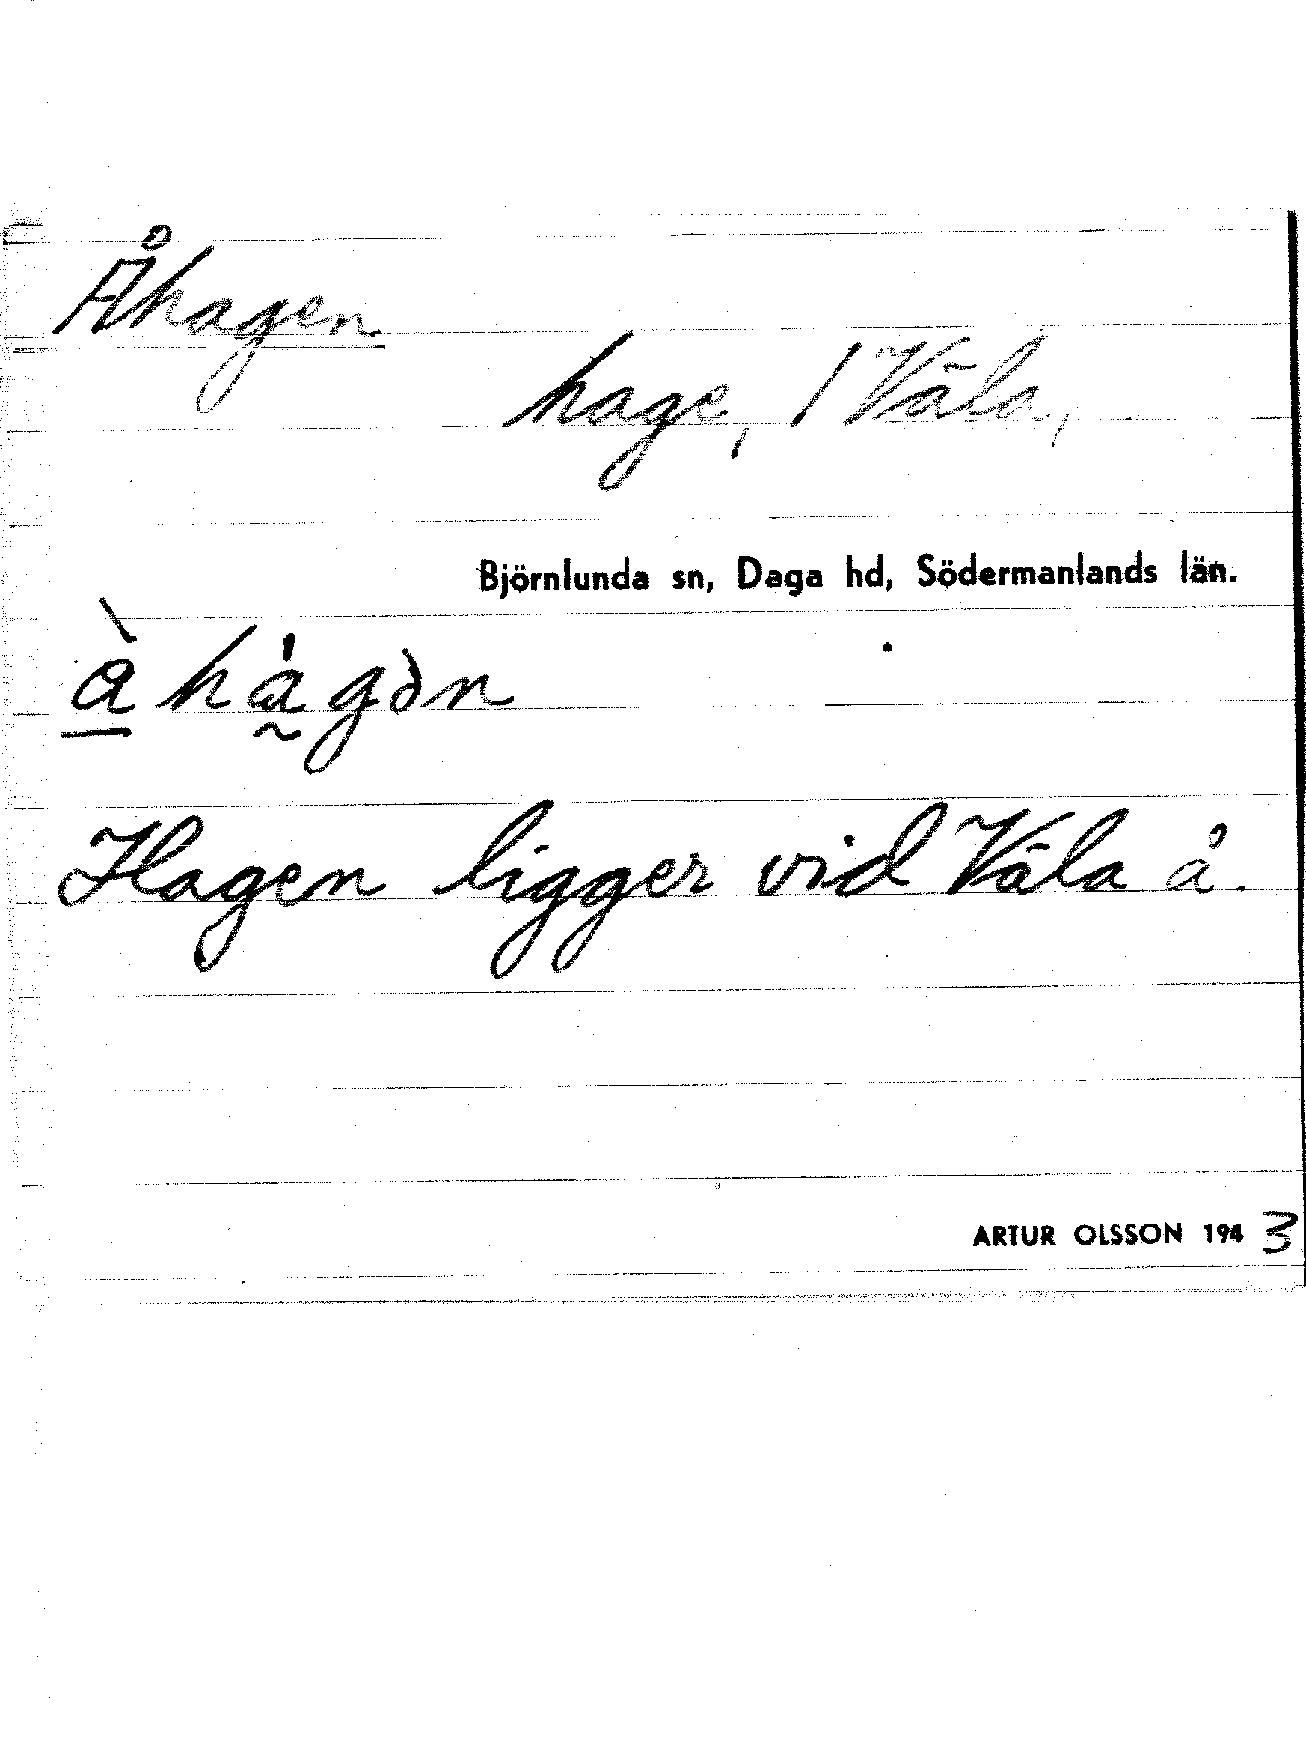 Åhagen
hage, / Väla,
Björnlunda sn, Daga hd, Södermanlands län.
å̀ hà̰gən
Hagen ligger vid Väla å.
ARTUR OLSSON 1943